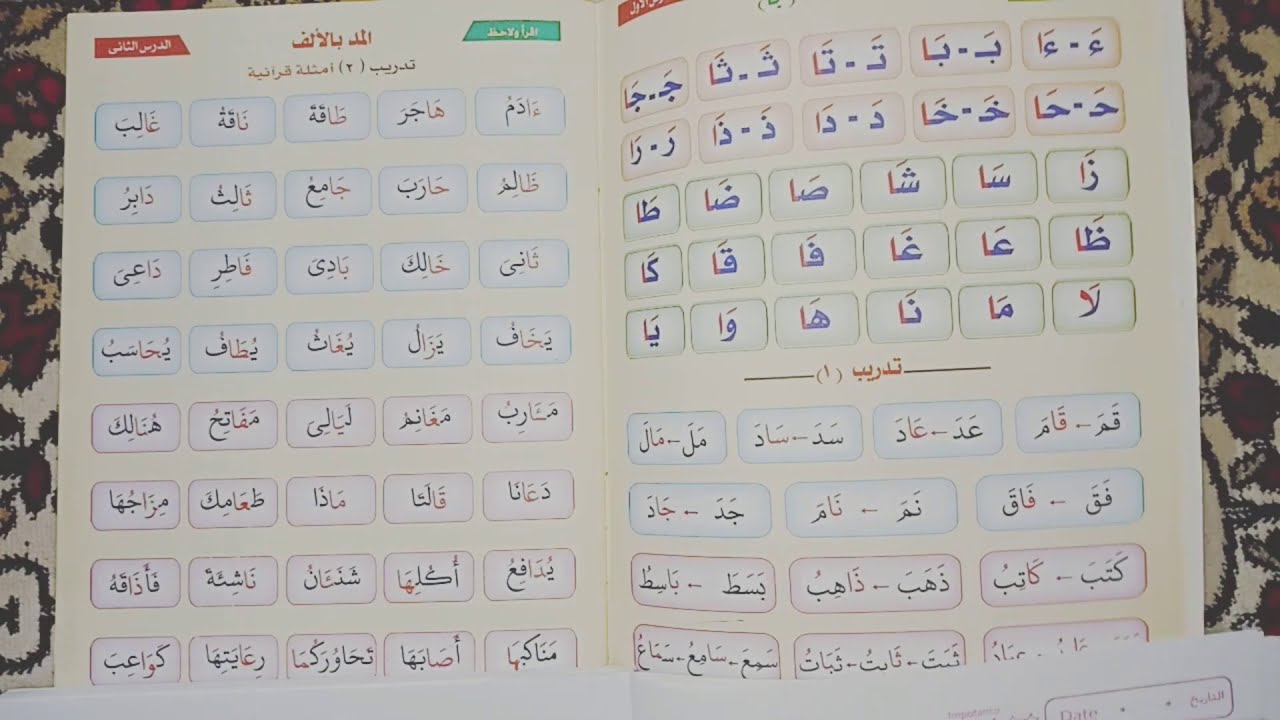 الدرس الأول
(با)
ءَ - ءَا بَ - بَا تَ - تَا ثَ - ثَا جَ - جَا
حَ - حَا خَ - خَا دَ - دَا ذَ - ذَا رَ - رَا
زَا سَا شَا صَا ضَا طَا
ظَا عَا غَا فَا قَا كَا
لَا مَا نَا هَا وَا يَا
تدريب (١)
قَمَ ← قَامَ عَدَ ← عَادَ سَدَ ← سَادَ مَلَ ← مَالَ
فَقَ ← فَاقَ نَمَ ← نَامَ جَدَ ← جَادَ
كَتَبَ ← كَاتِبُ ذَهَبَ ← ذَاهِبُ بَسَطَ ← بَاسِطُ
ثَبَتَ ← ثَابِتُ ← ثَبَاتُ سَمِعَ ← سَامِعُ ← سَمَاعُ
اقرأ ولاحظ المد بالألف الدرس الثانى
تدريب (٢) أمثلة قرآنية
ءَادَمُ هَاجَرَ طَاقَةَ نَاقَةُ غَالِبَ
ظَالِمُ حَارَبَ جَامِعُ ثَالِثُ دَابِرُ
ثَانِىَ خَالِكَ بَادِىَ فَاطِرِ دَاعِىَ
يَخَافُ يَزَالُ يُغَاثُ يُطَافُ يُحَاسَبُ
مَـَٔارِبُ مَغَانِمُ لَيَالِىَ مَفَاتِحُ هُنَالِكَ
دَعَانَا قَالَتَا مَاذَا طَعَامِكَ مِزَاجُهَا
يُدَافِعُ أُكُلِهَا شَنَـَٔانُ نَاشِئَةَ فَأَذَاقَهُ
مَنَاكِبِهَا أَصَابَهَا تَحَاوُرَكُمَا رِعَايَتِهَا كَوَاعِبَ
التاريخ
Date